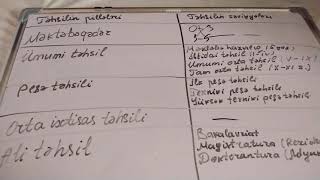 Təhsilin pillələri
Təhsilin səviyyələri
Məktəbəqədər
Ümumi təhsil
Məktəbə hazırlıq
İbtidai təhsil (I-IV)
Ümumi orta təhsil (V-IX)
Tam orta təhsil (X-XI
Peşə təhsili
İlk peşə təhsili
Texniki peşə təhsili
Yüksək texniki peşə təhsili
Orta ixtisas təhsili
Ali təhsil
Bakalavriat
Magistratura
Doktorantura